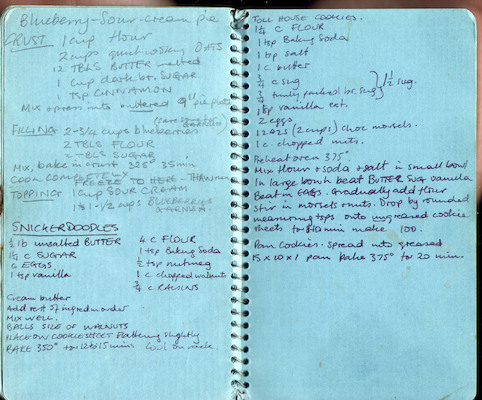 Blueberry-Sour-Cream pie
CRUST 1 cup flour
2 cups quick cooking OATS
12 TBLS BUTTER melted
1 cup dark br. SUGAR
1 tsp CINNAMON
Mix & press into buttered 9" pie plate
FILLING 2-3/4 cups blueberries
2 TBLS FLOUR
2 TBLS SUGAR
Mix, bake in crust 325° 35 min
COOL COMPLETELY
FREEZE TO HERE - THAW
TOPPING: 1 cup SOUR CREAM
1-1/2 cups BLUEBERRIES
GARNISH
SNICKERDOODLES
1/2 lb unsalted BUTTER
c SUGAR
6 EGGS
1 tsp vanilla
4 c FLOUR
1 tsp Baking Soda
1/2 tsp nutmeg
1 c. chopped walnuts
3/4 c RAISINS
Cream butter
Add rest of ingred in order
MIX WELL.
BALLS SIZE OF WALNUTS
PLACE ON COOKIE SHEET flattening slightly
BAKE 350° for 12 to 15 mins. Cool on rack.
TOLL HOUSE COOKIES.
c FLOUR
1 tsp Baking Soda
1 tsp salt
1 c butter
3/4 c sug
3/4 firmly packed br. sug } 1 1/2 sug.
vanilla ext.
2 eggs
12 ozs (2 cups) choc morsels.
1 c. chopped nuts.
Preheat oven 375°
Mix flour + soda + salt in small bowl
In large bowl beat BUTTER SUG vanilla
Beat in EGGS. Gradually add flour
stir in morsels + nuts. Drop by rounded
measuring tsps onto ungreased cookie
sheets for 10 min make 100.
Pan Cookies. Spread into greased
15 x 10 x 1 pan Bake 375° for 20 min.